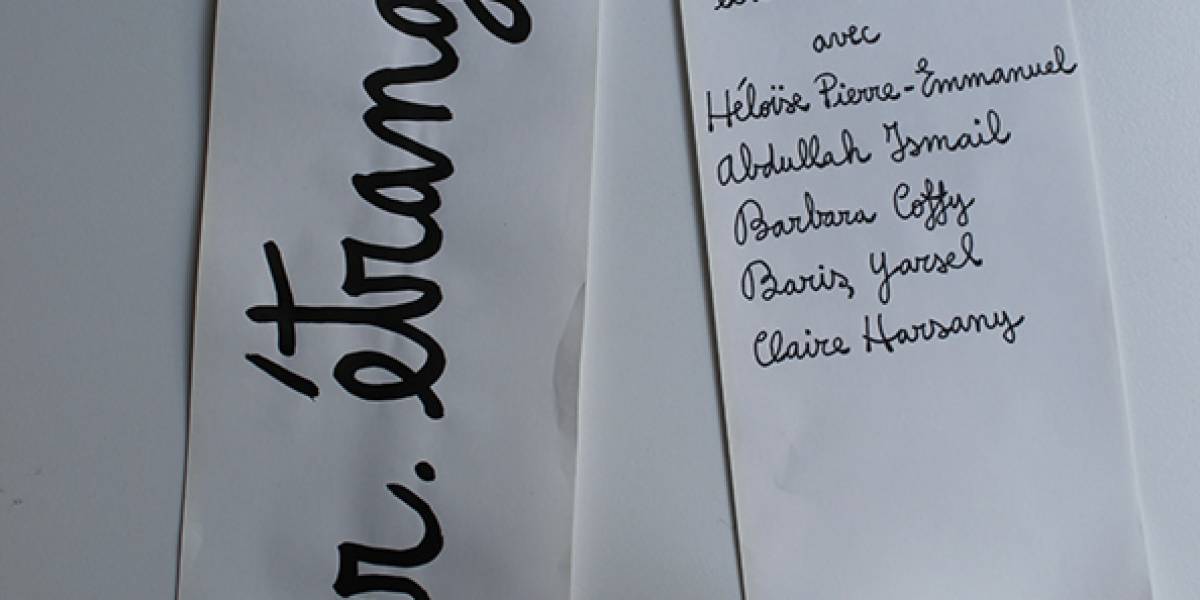 r. étrang
avec
Héloïse Pierre-Emmanuel
Abdullah Ismail
Barbara Coffy
Bariş Yarsel
Claire Harsany